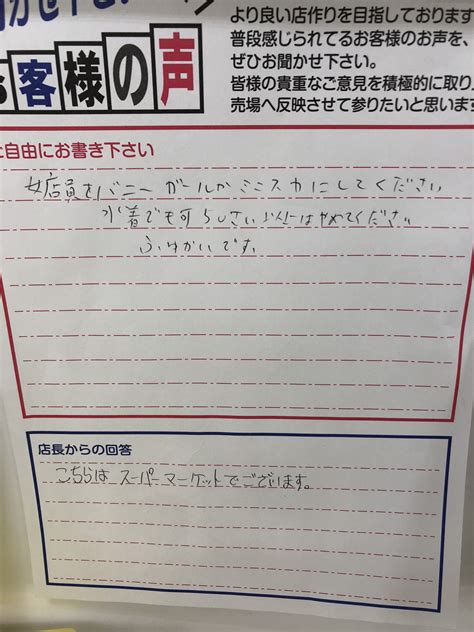 より良い店作りを目指しております
普段感じられてるお客様のお声を、
ぜひお聞かせ下さい。
皆様の貴重なご意見を積極的に取り
売場へ反映させて参りたいと思います
お客様の声
自由にお書き下さい
女店員をバニーガールかミニスカにしてください
水着でも可らしさい はやめてください
ふゆかいです。
店長からの回答
こちらはスーパーマーケットでございます。